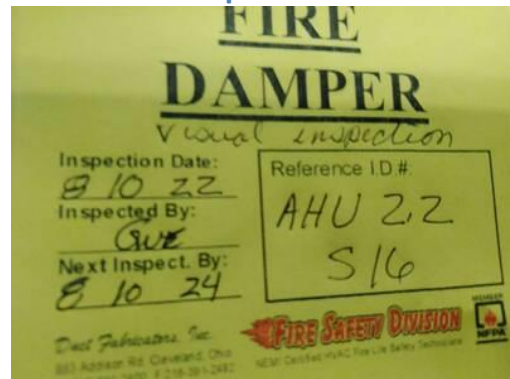 FIRE
DAMPER
Visual inspection
Inspection Date:
8 10 22
Inspected By:
Next Inspect. By:
8 10 24
Reference I.D.#:
AHU 2.2
S16
Duct Fabricators, Inc.
883 Addison Rd. Cleveland, Ohio
FIRE SAFETY DIVISION
NEMI Certified HVAC Fire Life Safety Technicians
MEMBER
NFPA